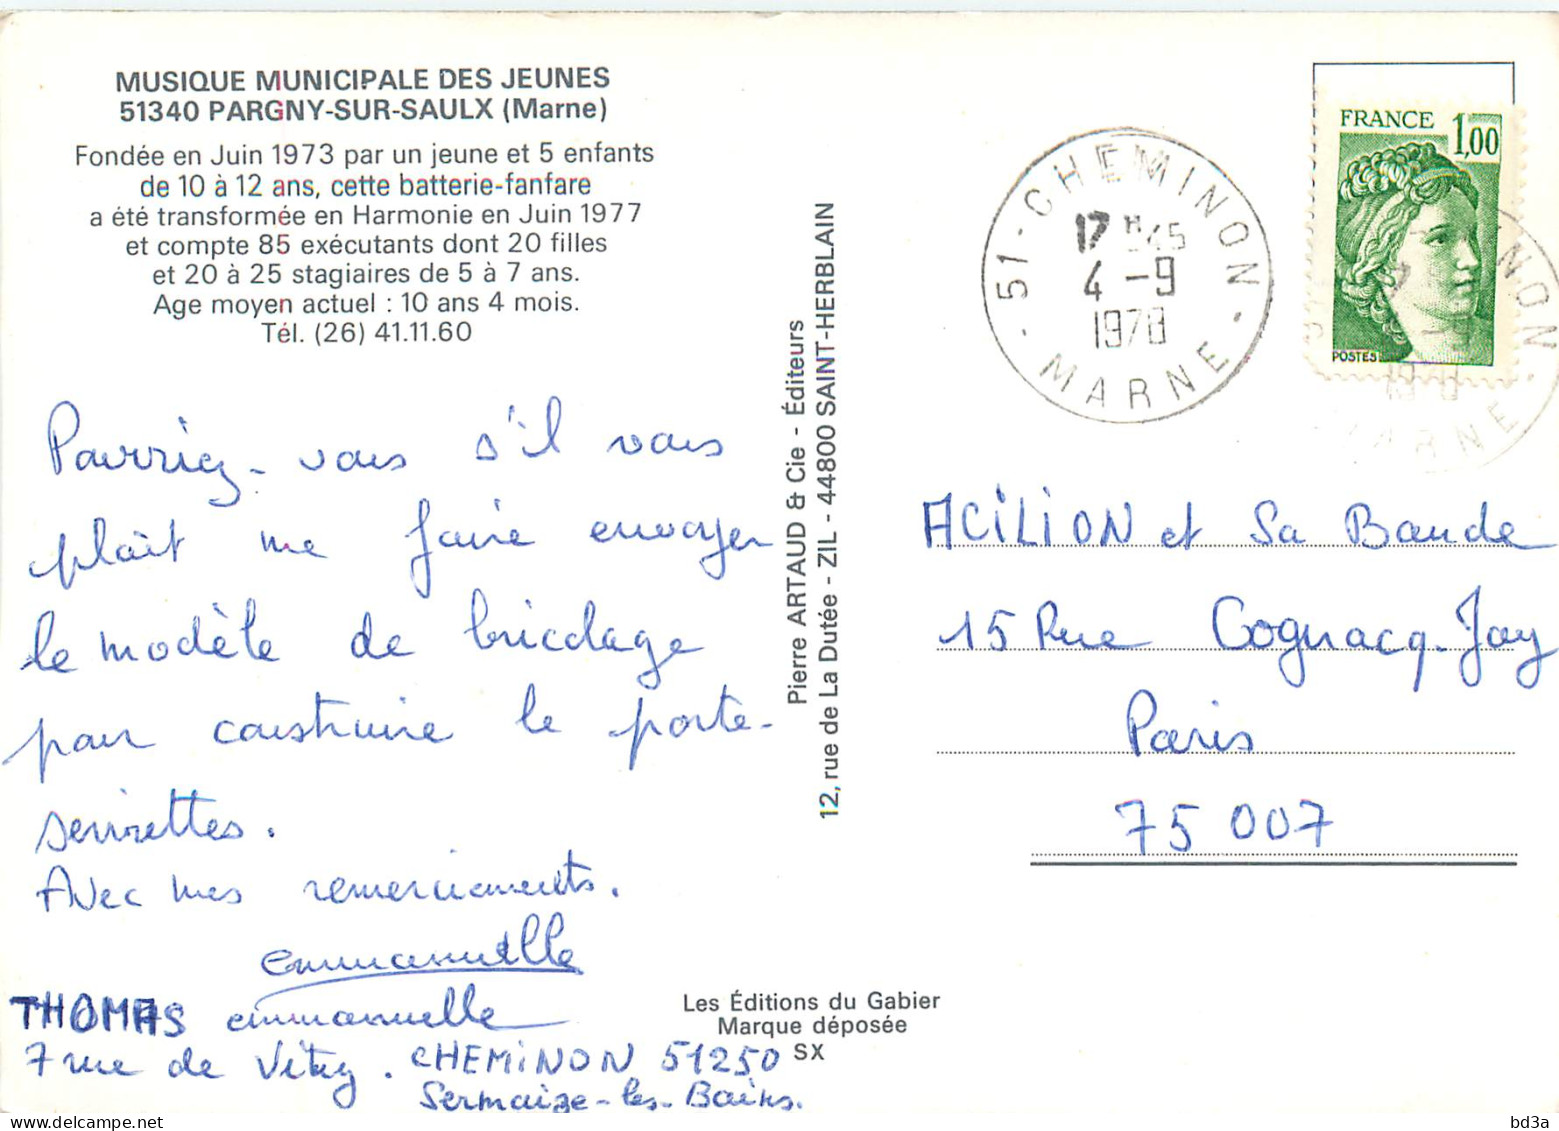 MUSIQUE MUNICIPALE DES JEUNES
51340 PARGNY-SUR-SAULX (Marne)
Fondée en Juin 1973 par un jeune et 5 enfants
de 10 à 12 ans, cette batterie-fanfare
a été transformée en Harmonie en Juin 1977
et compte 85 exécutants dont 20 filles
et 20 à 25 stagiaires de 5 à 7 ans.
Age moyen actuel : 10 ans 4 mois.
Tél. (26) 41.11.60
Pourriez-vous s'il vous
plaît me faire envoyer
le modèle de bricolage
pour construire le porte-
serviettes.
Avec mes remerciements.
emmanuelle
THOMAS emmanuelle
7 rue de Vitry. CHEMINON 51250
Sermaize-les-Bains.
Pierre ARTAUD & Cie - Éditeurs
12, rue de La Dutée - ZIL - 44800 SAINT-HERBLAIN
Les Éditions du Gabier
Marque déposée
SX
51 - CHEMINON
17 H 45
4 - 9
1978
- MARNE -
FRANCE 1,00
POSTES
NON
MARNE
ACILION et Sa Bande
15 Rue Cognacq-Jay
Paris
75 007
delcampe.net
bd3a